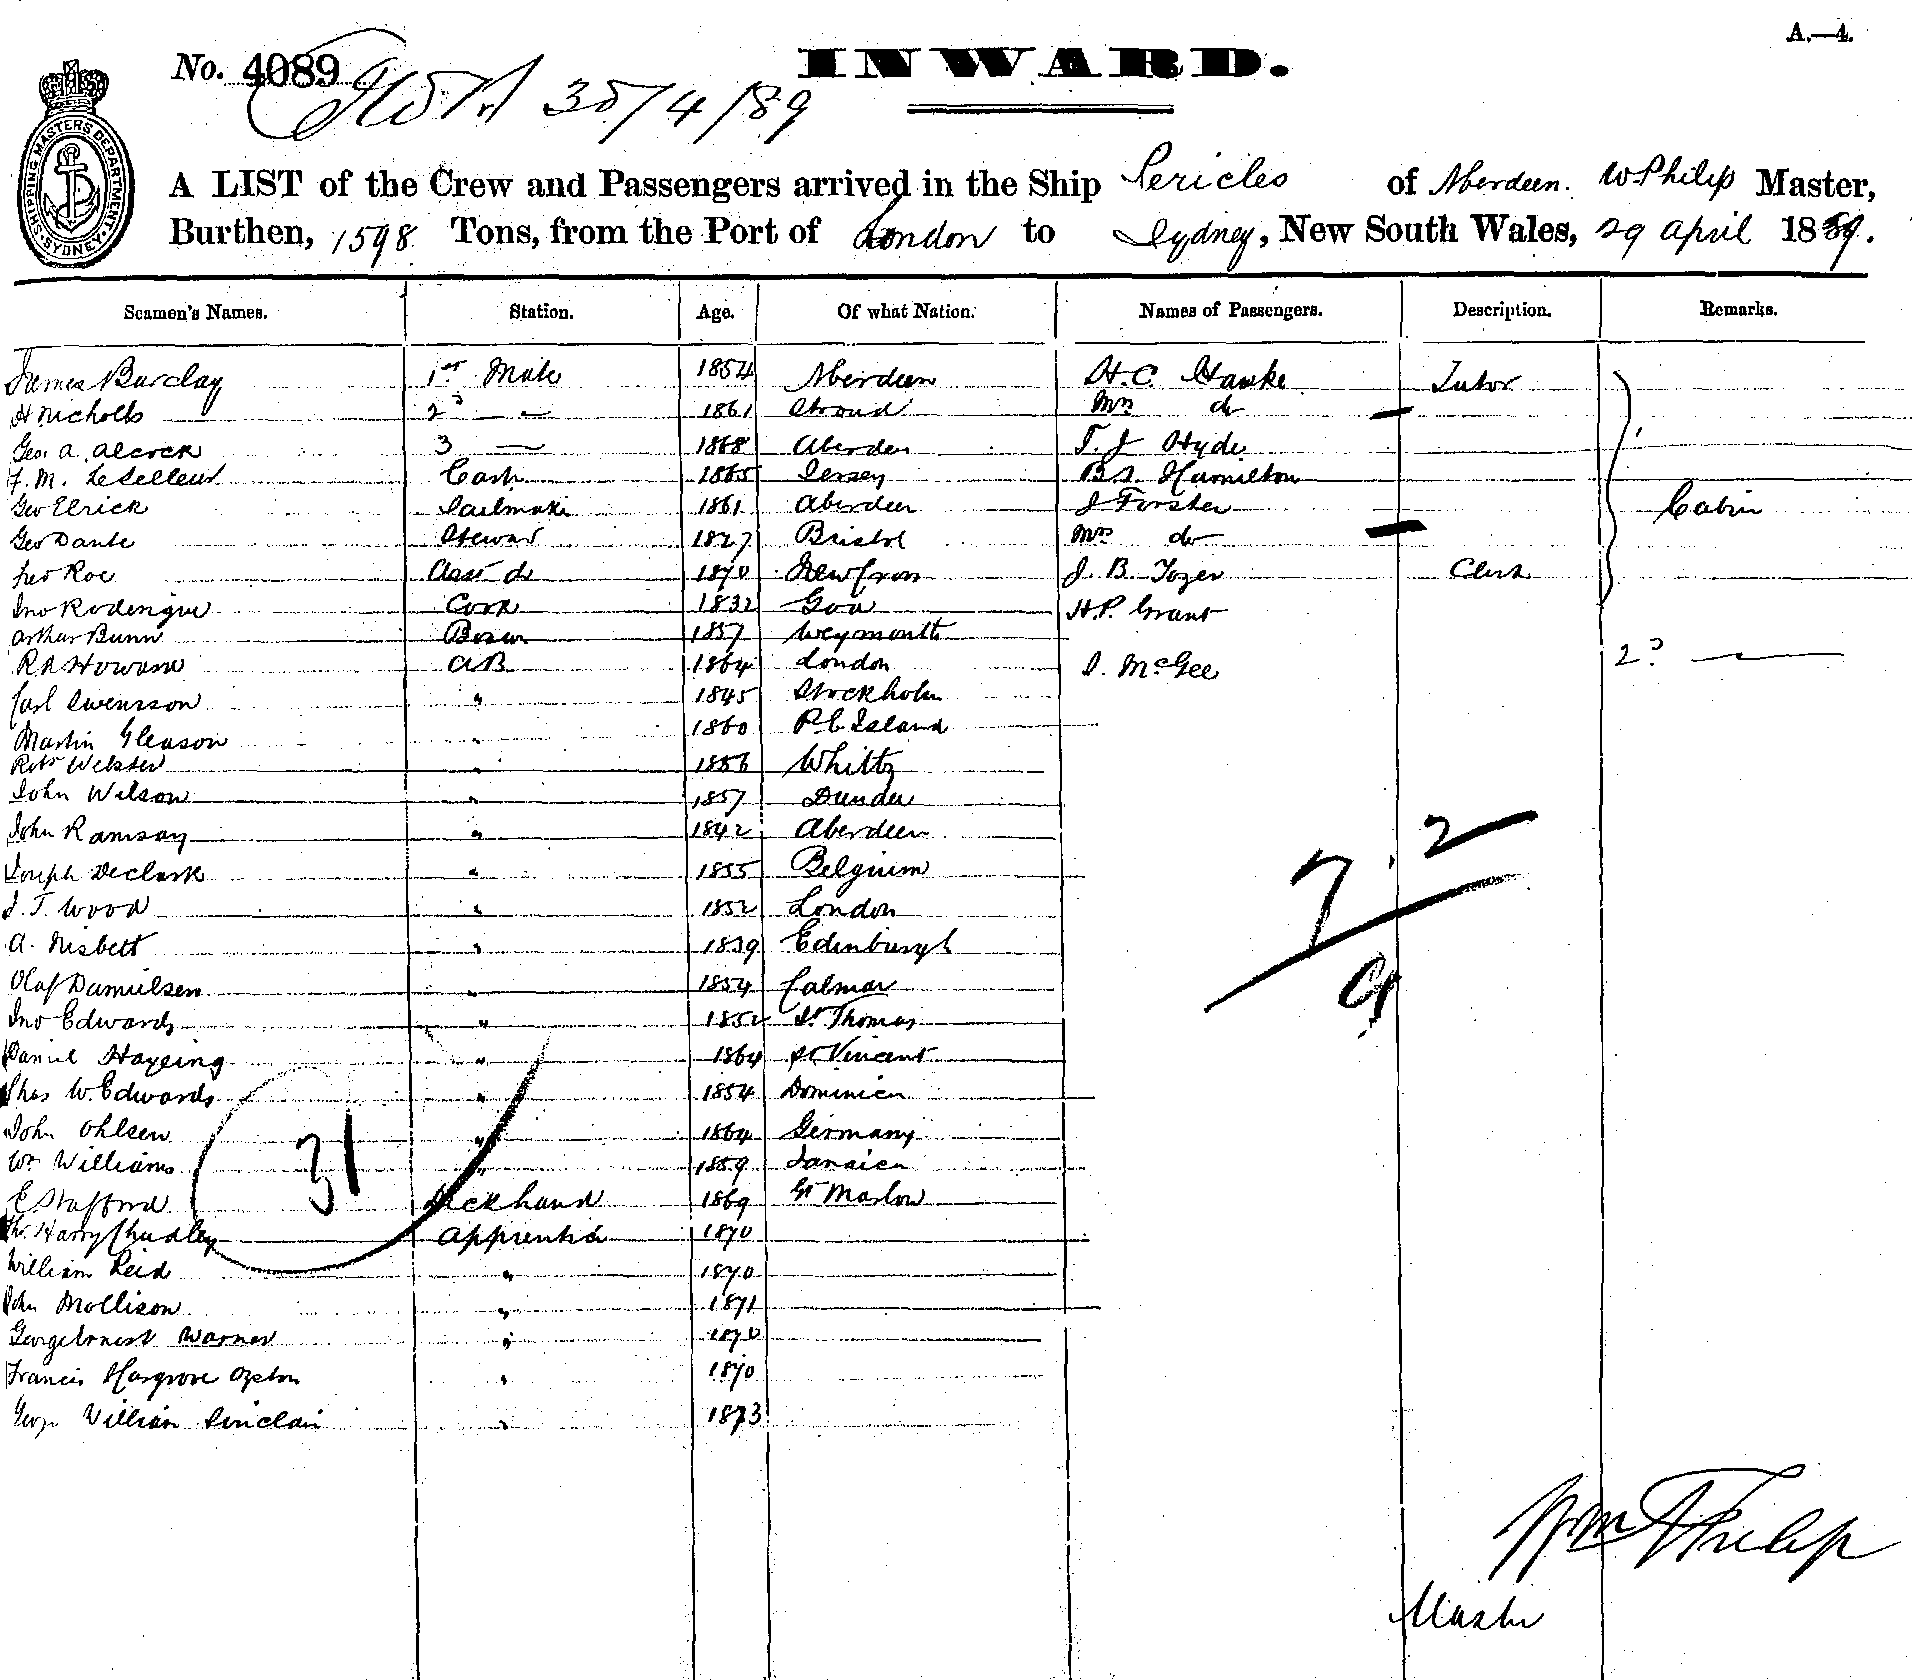 A.—4.
No. 4089 INWARD.
30/4/89
SHIPPING MASTERS DEPARTMENT. SYDNEY
A LIST of the Crew and Passengers arrived in the Ship Pericles of Aberdeen. W Philip Master,
Burthen, 1598 Tons, from the Port of London to Sydney, New South Wales, 29 April 1889.
Seamen's Names. Station. Age. Of what Nation. Names of Passengers. Description. Remarks.
James Barclay 1st Mate 1854 Aberdeen H. C. Hawke Tutor
H Nicholls 2d — 1861 Stroud Mrs do —
Geo. A. Alcock 3 — 1868 Aberdeen T. J Hyde
F. M. LeSelleur Carp. 1865 Jersey Hamilton
Geo Elrick Sailmaker 1861 Aberdeen J Forster Cabin
Geo Dante Steward 1827 Bristol Mrs do —
Roe Asst do 1870 New Cross J. B. Tozer Clerk
Jno Roderigue Cook 1832 Goa H. P. Grant
Arthur Bunn Bosun 1857 Weymouth
R A Howard AB 1864 London J. McGee 2d —
Carl Swensson " 1845 Stockholm
Martin Gleason " 1860 P. E Island
Robt Webster " 1856 Whitby
John Wilson " 1857 Dundee
John Ramsay " 1842 Aberdeen
Joseph Declark " 1855 Belgium
J. T. Wood " 1852 London
A. Nisbett " 1839 Edinburgh
Olaf Danielsen " 1854 Calmar
Jno Edwards " 1852 St Thomas
Daniel Hayeing " 1864 St Vincent
Thos W. Edwards " 1854 Dominica
John Ohlsen " 1864 Germany
Wm Williams " 1859 Jamaica
E Stafford Deckhand 1869 Gt Marlow
Harry Chudley Apprentice 1870
William Reid " 1870
John Mollison " 1871
George Ernest Warner " 1870
Francis Hargrove " 1870
George William Sinclair " 1873
7 . 2
9
31
Wm Philip
Master